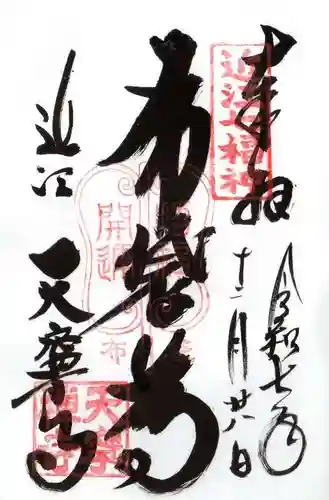 奉拝
令和七年
十二月廿八日
近江七福神
布袋尊
開運
布
近江
天寧寺
天寧